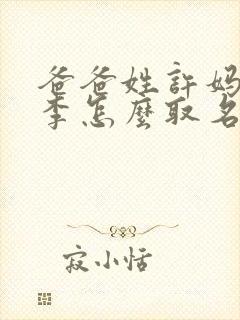 爸爸姓許媽
李怎麼取名
寂小恬